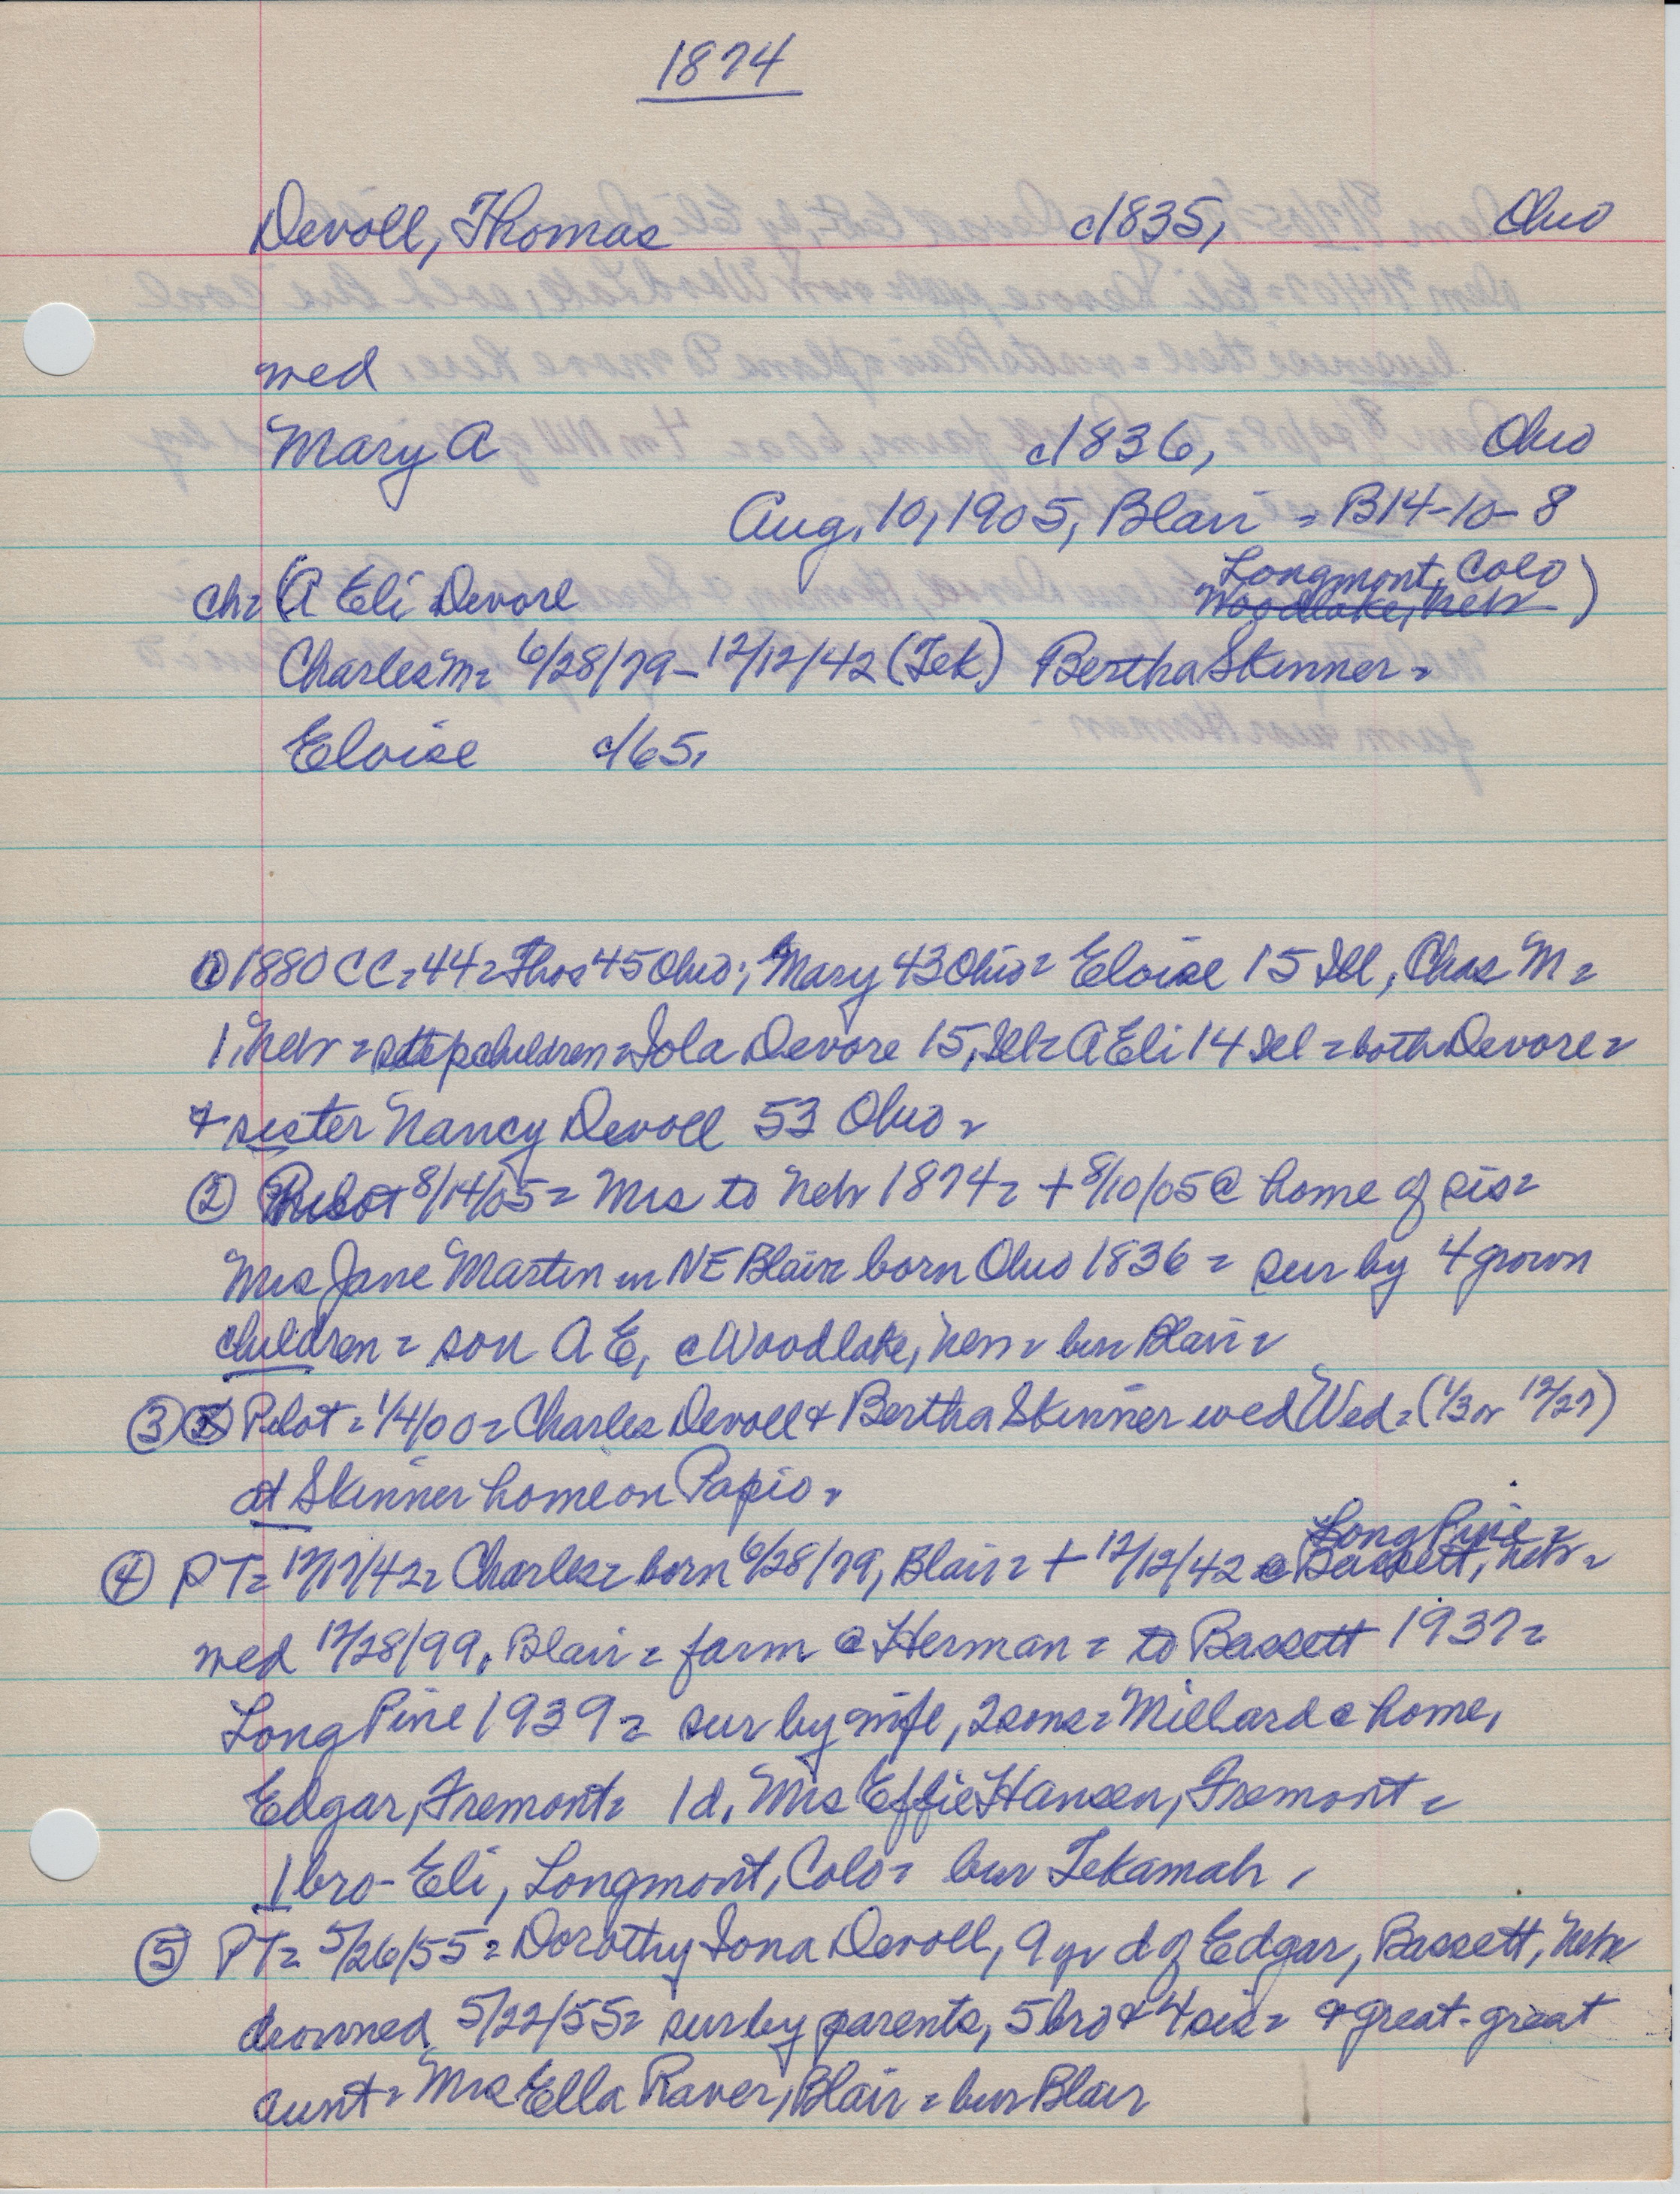 1874
Devoll, Thomas c1835, Ohio
wed
Mary A c1836, Ohio
Aug. 10, 1905, Blair = B14-10-8
Longmont, Colo
ch= (A Eli Devore Woodlake, Nebr )
Charles M= 6/28/79-12/12/42 (Tek.) Bertha Skinner =
Eloise c/65,
① 1880 CC=44= Thos 45 Ohio; Mary 43 Ohio= Eloise 15 Ill, Chas M=
1, Nebr = stepchildren = Iola Devore 15, Ill= A Eli 14 Ill = both Devore =
+ sister Nancy Devoll 53 Ohio =
② Pilot 8/14/05= Mrs to Nebr 1874= + 8/10/05 @ home of sis=
Mrs Jane Martin in NE Blair= born Ohio 1836 = sur by 4 grown
children = son A E, @ Woodlake, Nebr= bur Blair=
③ Pilot = 1/4/00= Charles Devoll + Bertha Skinner wed Wed = (1/3 or 12/27)
at Skinner home on Papio,
Long Pine =
④ PT= 12/17/42= Charles= born 6/28/79, Blair= + 12/12/42 @ Bassett, Nebr=
wed 12/28/99, Blair = farm @ Herman = to Bassett 1937=
Long Pine 1939= sur by wife, 2 sons= Millard @ home,
Edgar, Fremont= 1 d, Mrs Effie Hansen, Fremont =
1 bro- Eli, Longmont, Colo= bur Tekamah,
⑤ PT= 5/26/55= Dorothy Iona Devoll, 9 yr d of Edgar, Bassett, Nebr
drowned 5/22/55= sur by parents, 5 bro + 4 sis= + great-great
aunt= Mrs Ella Raver, Blair = bur Blair